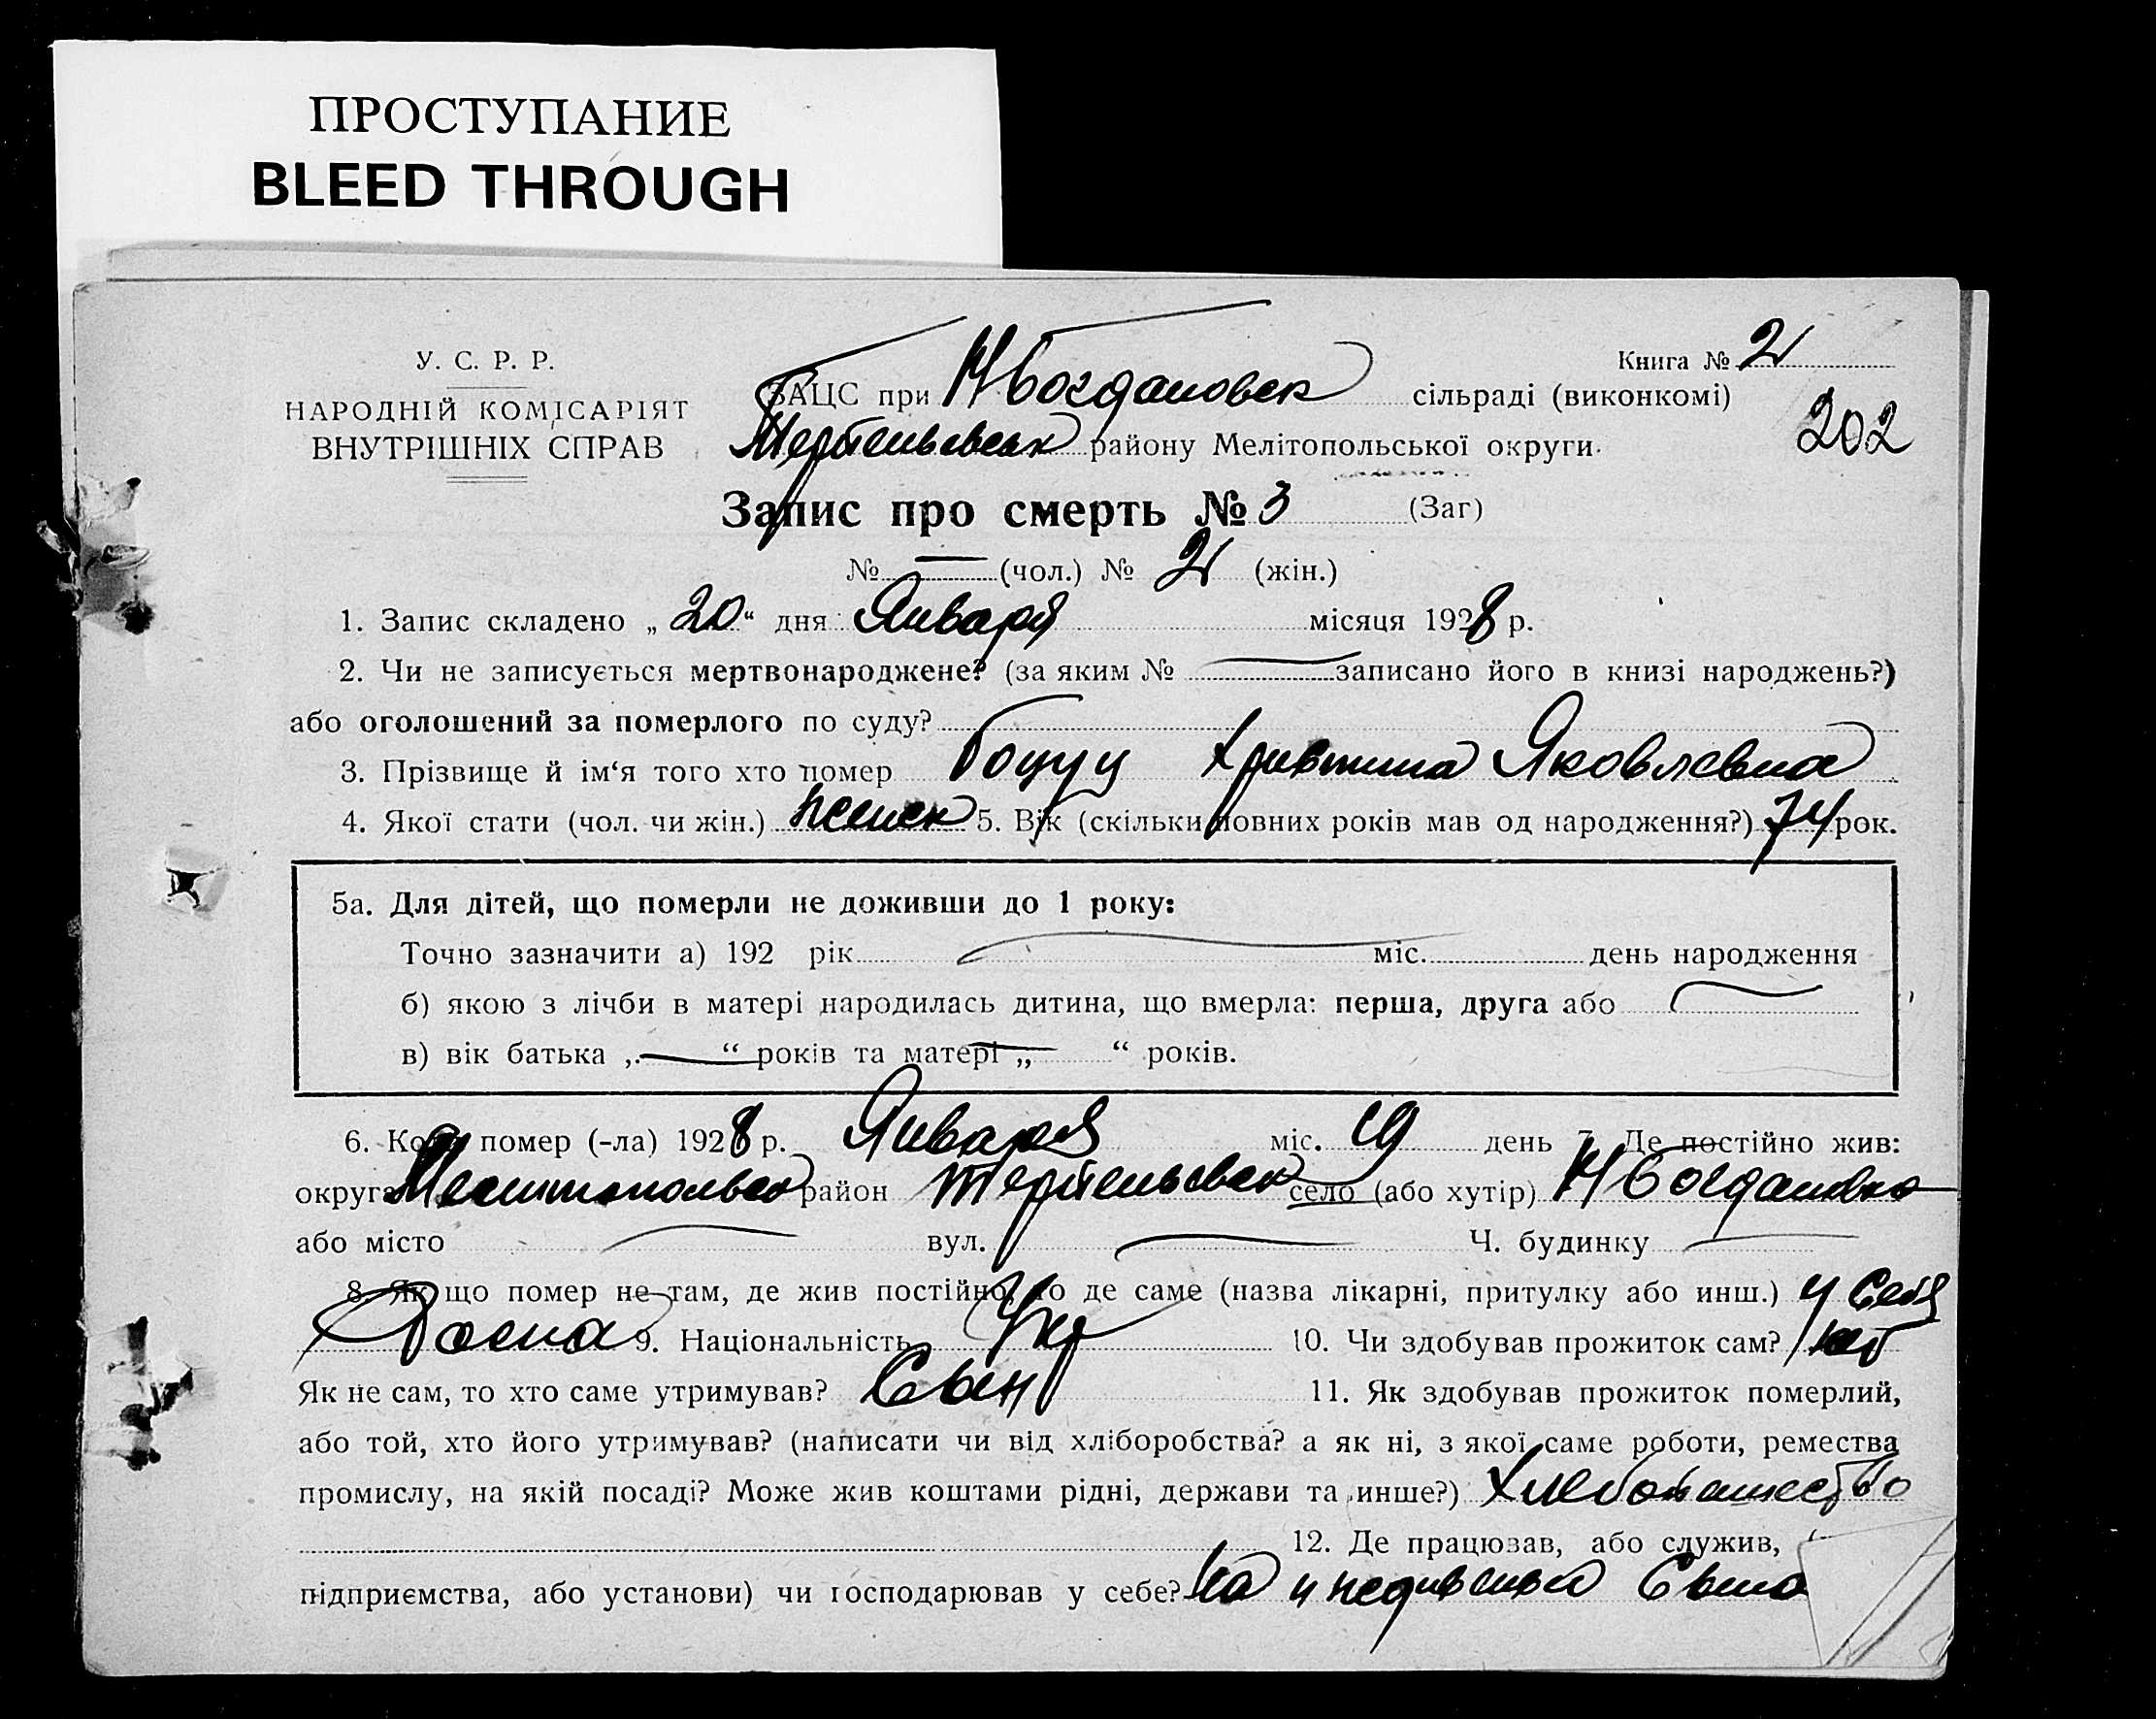 ПРОСТУПАНИЕ
BLEED THROUGH
Книга № 2
У. С. Р. Р.
ЗАЦС при Н Богдановск сільраді (виконкомі)
НАРОДНІЙ КОМІСАРІЯТ
202
ВНУТРІШНІХ СПРАВ
району Мелітопольської округи.
Запис про смерть № 3 (Заг)
№ — (чол.) № 2 (жін.)
1. Запис складено „20“ дня Января місяця 1928 р.
2. Чи не записується мертвонароджене? (за яким № — записано його в книзі народжень?)
або оголошений за померлого по суду?
3. Прізвище й ім‘я того хто помер Гоцуц Християна Яковлевна
4. Якої стати (чол. чи жін.) женск 5. Вік (скільки повних років мав од народження?) 74 рок.
5а. Для дітей, що померли не доживши до 1 року:
Точно зазначити а) 192 рік — міс. день народження
б) якою з лічби в матері народилась дитина, що вмерла: перша, друга або —
в) вік батька „—“ років та матері „—“ років.
6. Коли помер (-ла) 1928 р. Января міс. 19 день 7. Де постійно жив:
округа район село (або хутір) Н Богдановка
або місто — вул. — Ч. будинку —
8. Якщо помер не там, де жив постійно, то де саме (назва лікарні, притулку або инш.) у себя
дома 9. Національність Укр 10. Чи здобував прожиток сам? нет
Як не сам, то хто саме утримував? Сын 11. Як здобував прожиток померлий,
або той, хто його утримував? (написати чи від хліборобства? а як ні, з якої саме роботи, ремества
промислу, на якій посаді? Може жив коштами рідні, держави та инше?) Хлебопашество
12. Де працював, або служив,
підприємства, або установи) чи господарював у себе? На иждивении Сына